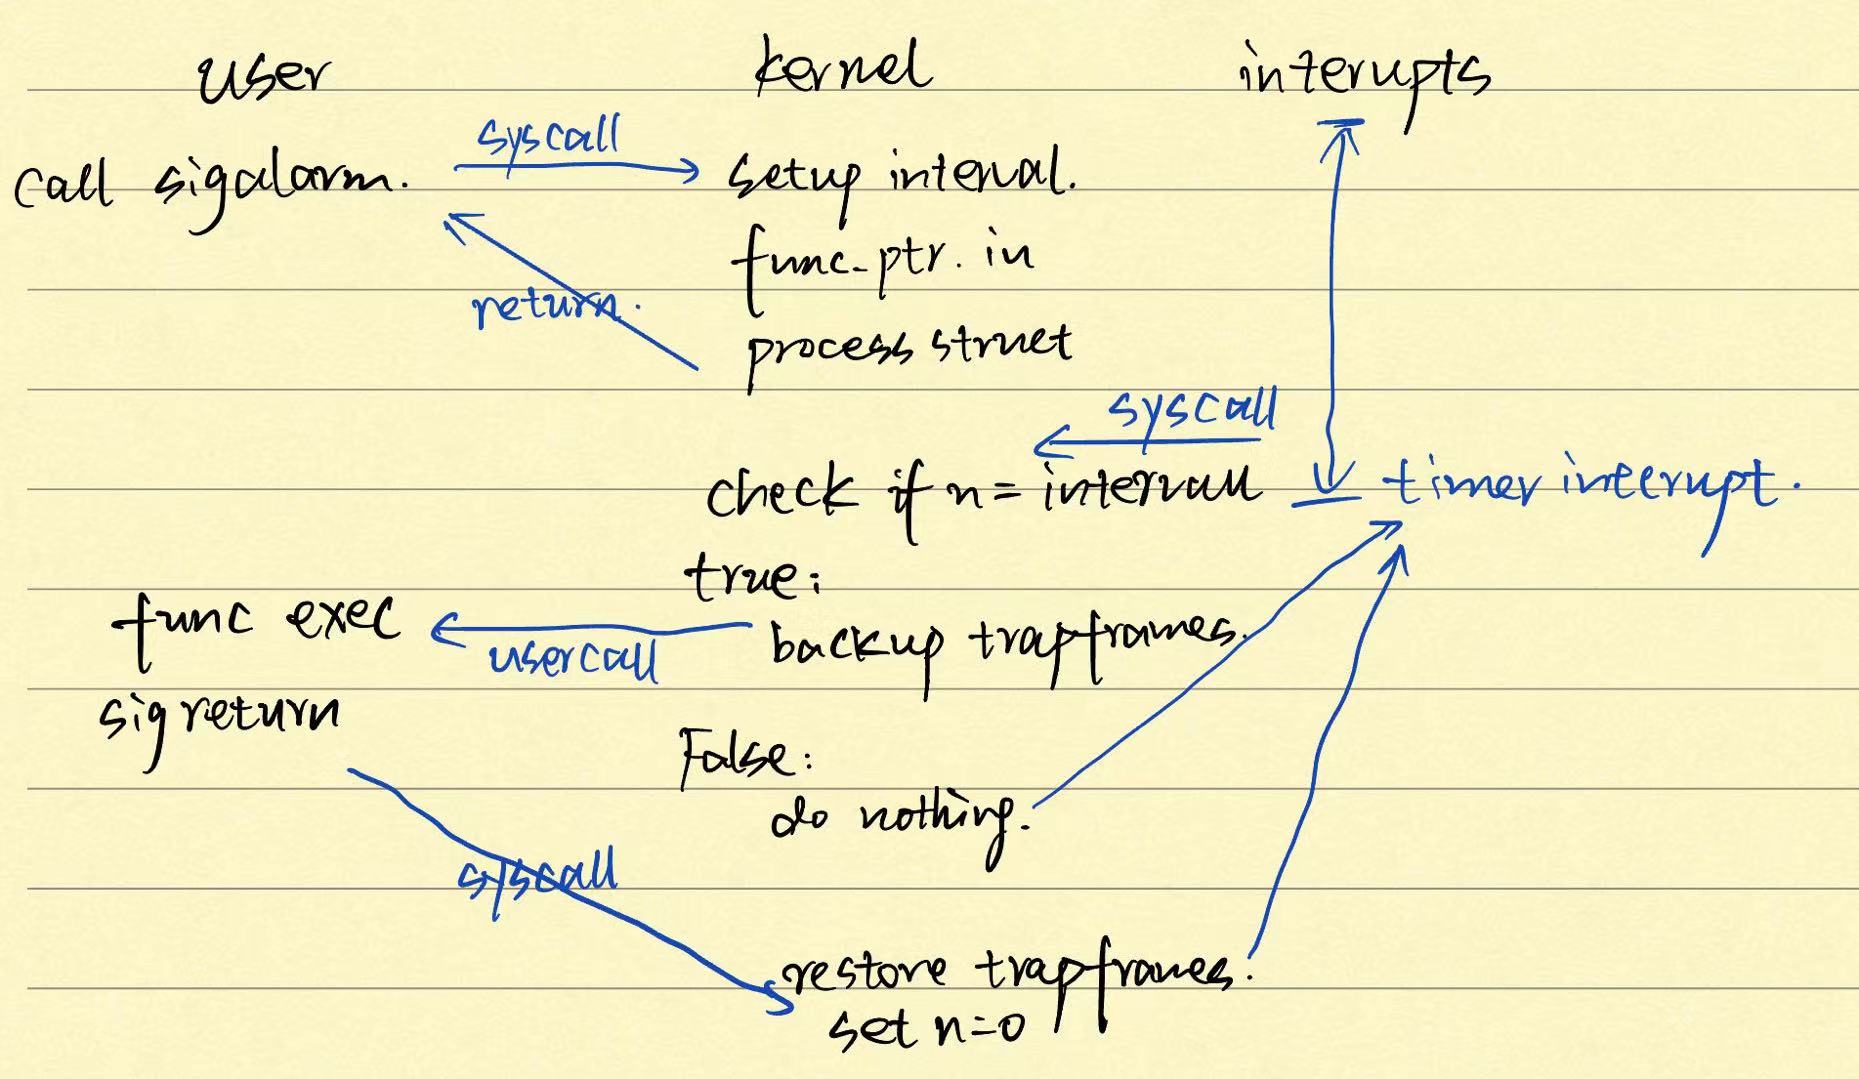 user kernel interupts
syscall
call sigalarm. setup interval.
func_ptr. in
return.
process struct
syscall
check if n = intervall timer interupt.
true:
func exec backup trapframes.
usercall
sigreturn
False:
do nothing.
syscall
restore trapframes.
set n=0